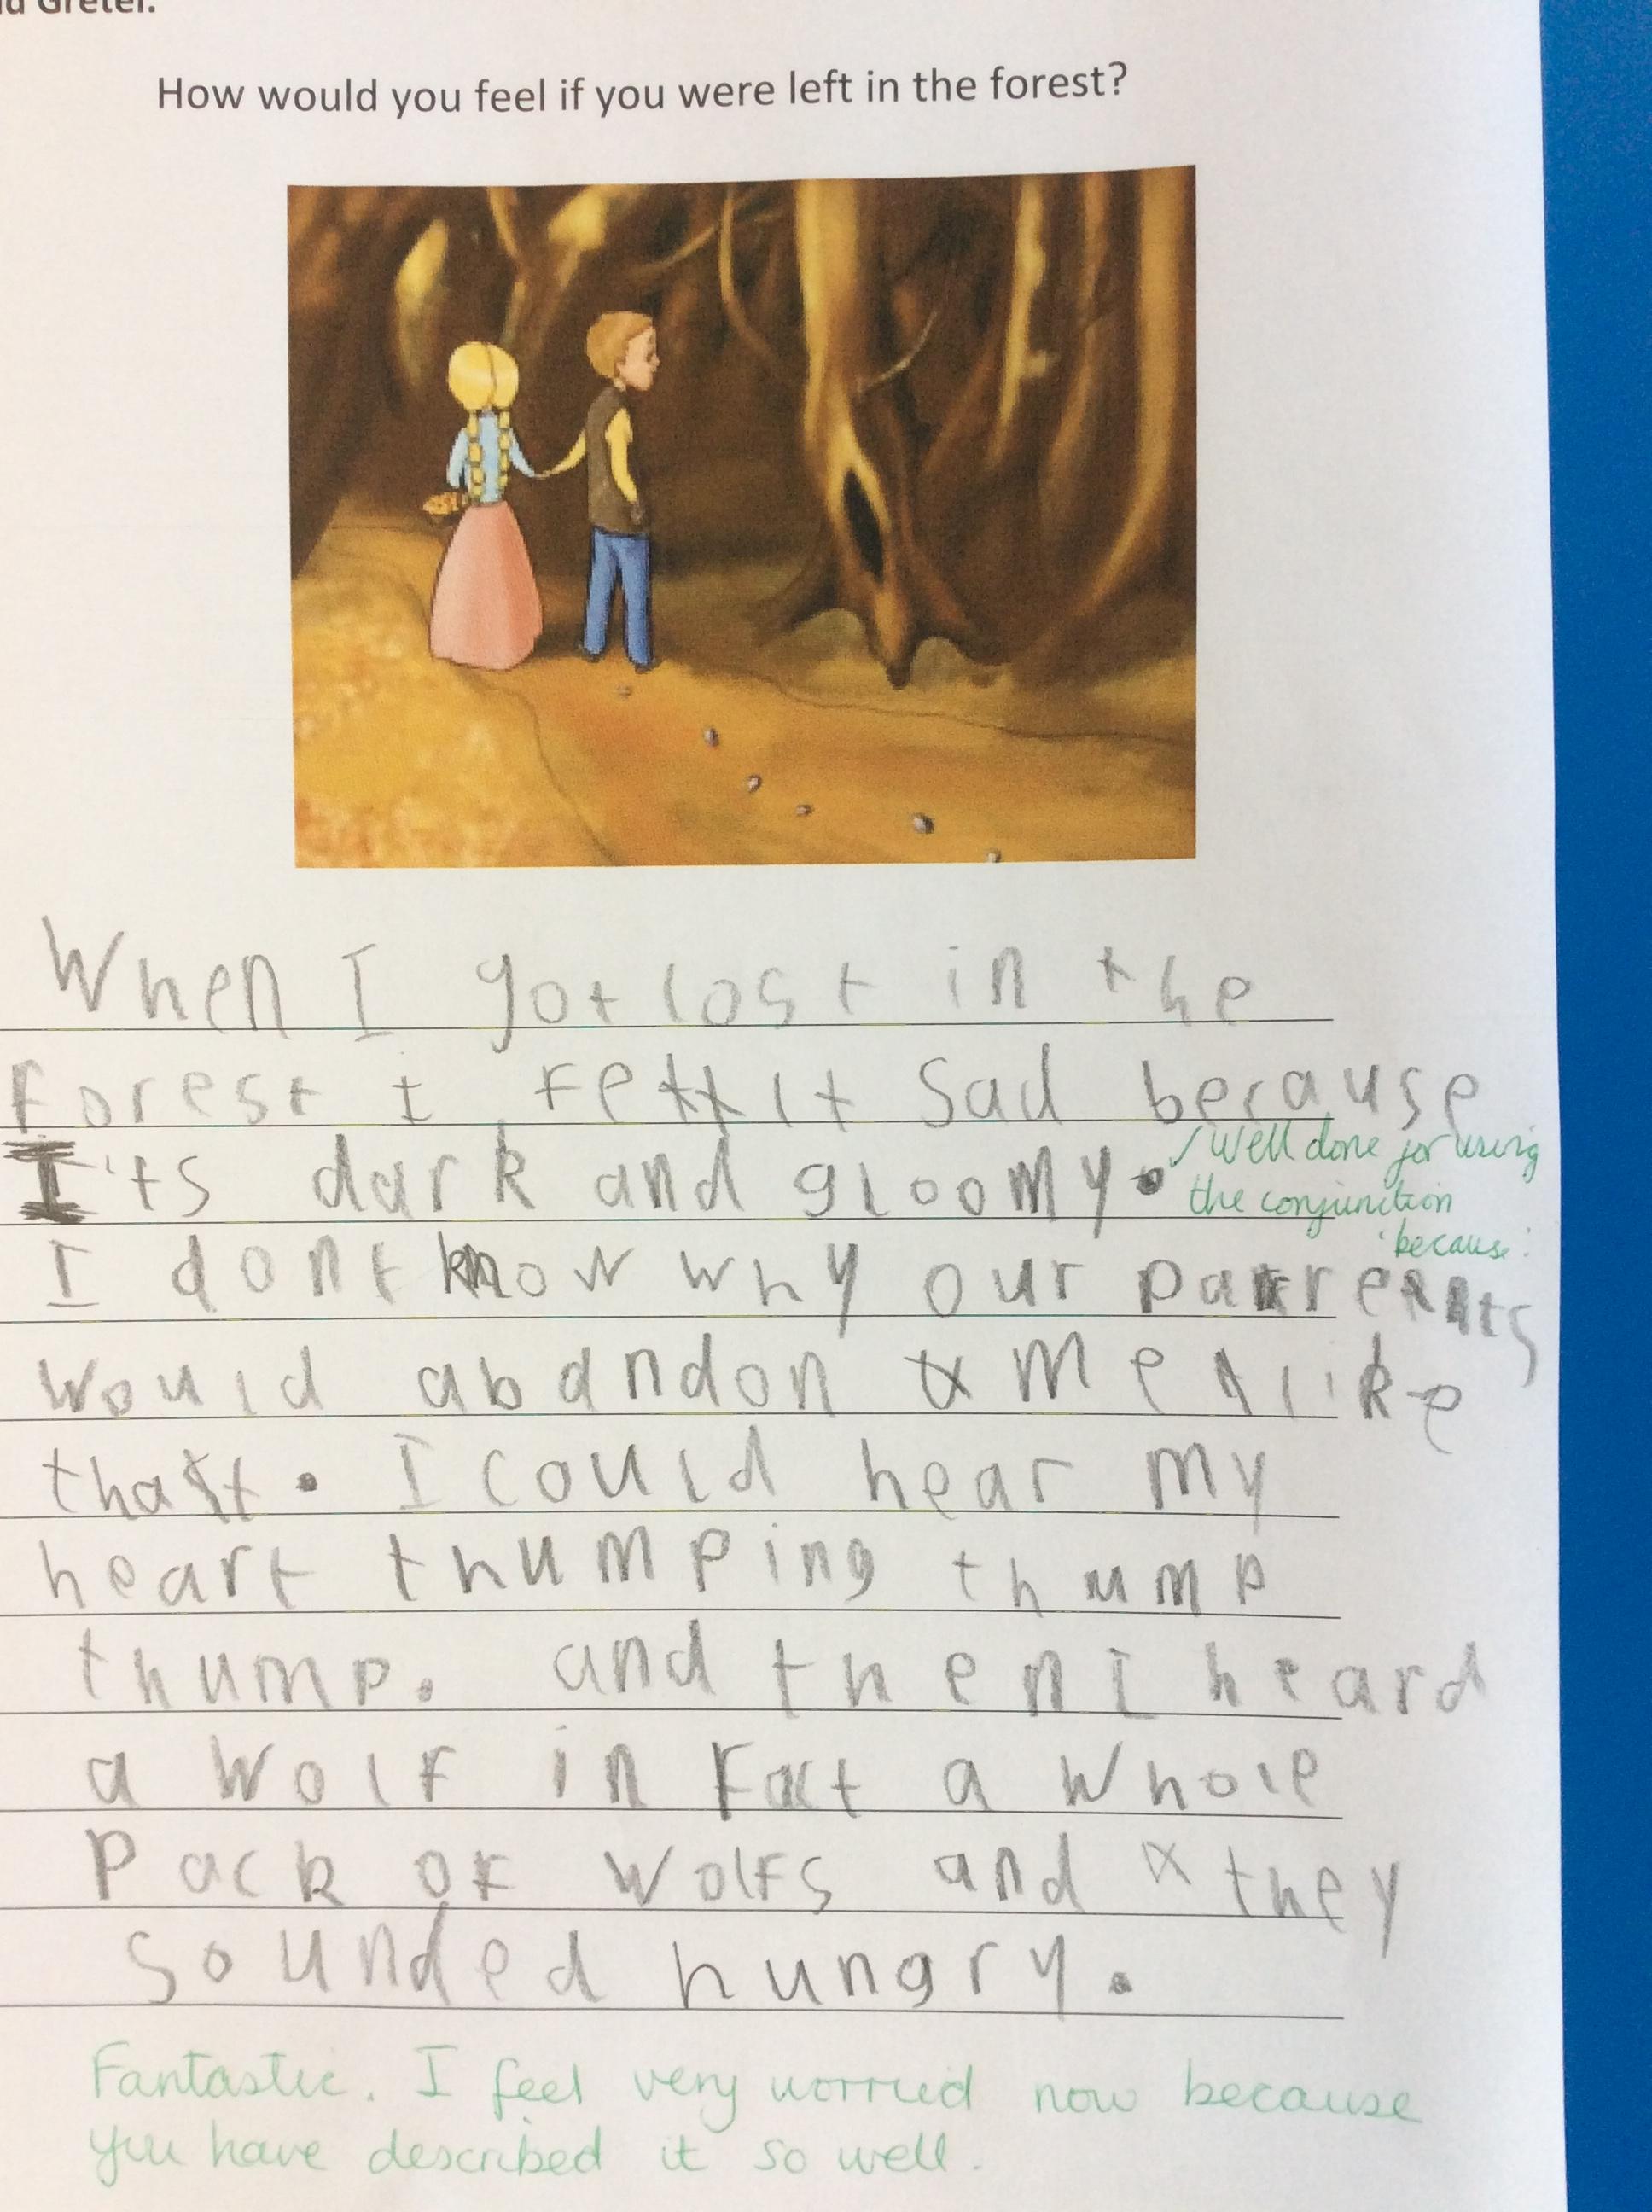 Gretel.
How would you feel if you were left in the forest?
When I got lost in the
forest I felt sad because
I'ts dark and gloomy.
✓ Well done for using
the conjunction
'because'.
I dont know why our parrents
would abandon me like
that. I could hear my
heart thumping thump
thump. and then I heard
a wolf in fact a whole
pack of wolfs and they
sounded hungry.
Fantastic. I feel very worried now because
you have described it so well.